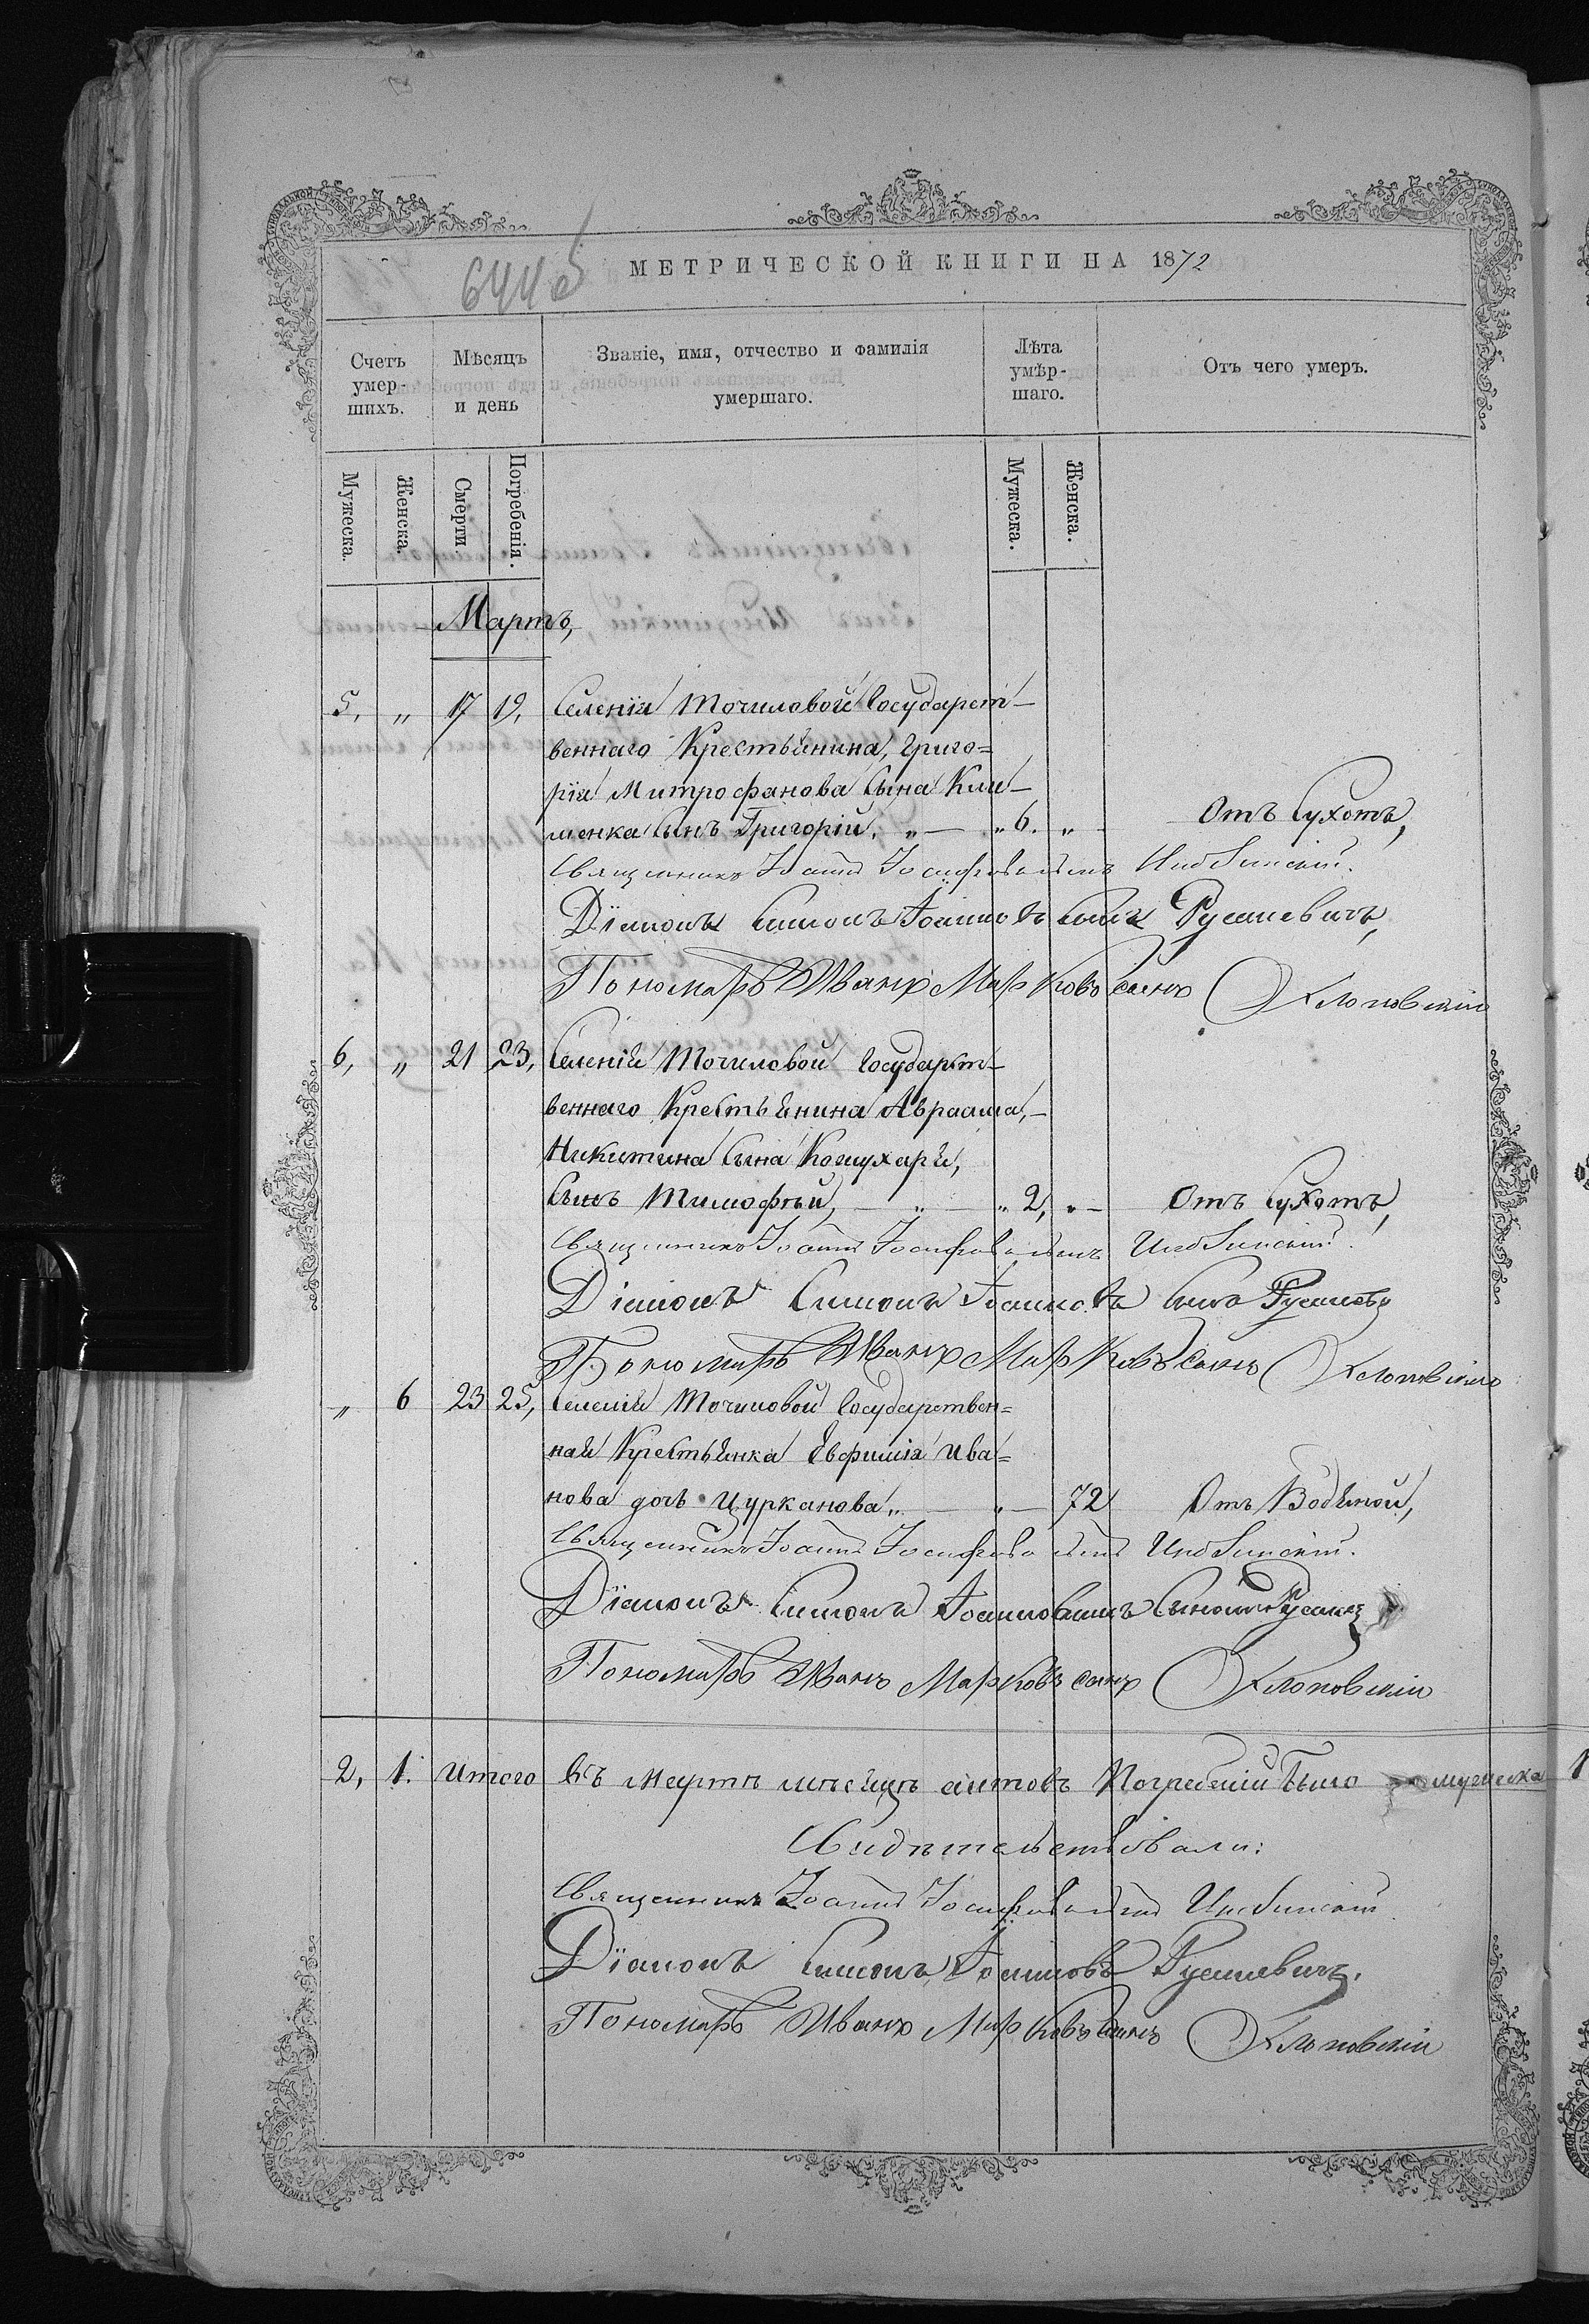 644об
МЕТРИЧЕСКОЙ КНИГИ НА 1872
Счетъ умер-шихъ.
Мѣсяцъ и день
Званіе, имя, отчество и фамилія умершаго.
Лѣта умѣр-шаго.
Отъ чего умеръ.
Мужеска.
Женска.
Смерти.
Погребенія.
Мужеска.
Женска.
Мартъ,
5, „ 17 19, Селенія Точиловой Государст-
веннаго Крестьянина, Григо=
рія Митрофанова Сына Кли-
менка Сынъ Григорій, „ — „ 6. „ Отъ Сухотъ,
Священникъ Іоаннъ Іосифовъ сынъ
Діаконъ Симонъ Іоанновъ Сынъ Русаневичъ,
Пономарь Иванъ Марковъ сынъ Хлоповскій
6, „ 21 23, Селенія Точиловой Государст-
веннаго Крестьянина Авраама,-
Никитина Сына Кожухаря,
Сынъ Тимофѣй, — „ — „ 2, „ — Отъ Сухотъ,
Священникъ Іоаннъ Іосифовъ сынъ
Діаконъ Симонъ Іоанновъ Сынъ
Пономарь Иванъ Марковъ сынъ Хлоповскій
„ 6 23 25, Селенія Точиловой Государствен=
ная Крестьянка Евфимія Ива=
нова дочь Цурканова „ — „ — 72 Отъ Водяной,
Священникъ Іоаннъ Іосифовъ сынъ
Діаконъ Симонъ Іоанновъ
Пономарь Иванъ Марковъ сынъ Хлоповскій
2, 1. Итого въ Мартѣ мѣсяцѣ актовъ Погребенія Было мужеска 1
Свидѣтельствовали:
Священникъ Іоаннъ Іосифовъ сынъ
Діаконъ Симонъ Іоанновъ Русаневичъ.
Пономарь Иванъ Марковъ Сынъ Хлоповскій